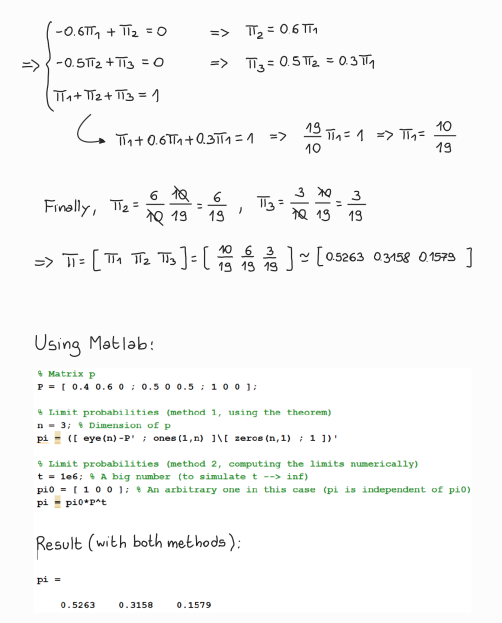 => { -0.6π₁ + π₂ = 0 => π₂ = 0.6π₁
-0.5π₂ + π₃ = 0 => π₃ = 0.5π₂ = 0.3π₁
π₁ + π₂ + π₃ = 1
π₁ + 0.6π₁ + 0.3π₁ = 1 => 19/10 π₁ = 1 => π₁ = 10/19
Finally, π₂ = 6/10 10/19 = 6/19 , π₃ = 3/10 10/19 = 3/19
=> π = [ π₁ π₂ π₃ ] = [ 10/19 6/19 3/19 ] ≃ [ 0.5263 0.3158 0.1579 ]
Using Matlab:
% Matrix p
P = [ 0.4 0.6 0 ; 0.5 0 0.5 ; 1 0 0 ];
% Limit probabilities (method 1, using the theorem)
n = 3; % Dimension of p
pi = ([ eye(n)-P' ; ones(1,n) ]\[ zeros(n,1) ; 1 ])'
% Limit probabilities (method 2, computing the limits numerically)
t = 1e6; % A big number (to simulate t --> inf)
pi0 = [ 1 0 0 ]; % An arbitrary one in this case (pi is independent of pi0)
pi = pi0*P^t
Result (with both methods):
pi =
0.5263 0.3158 0.1579